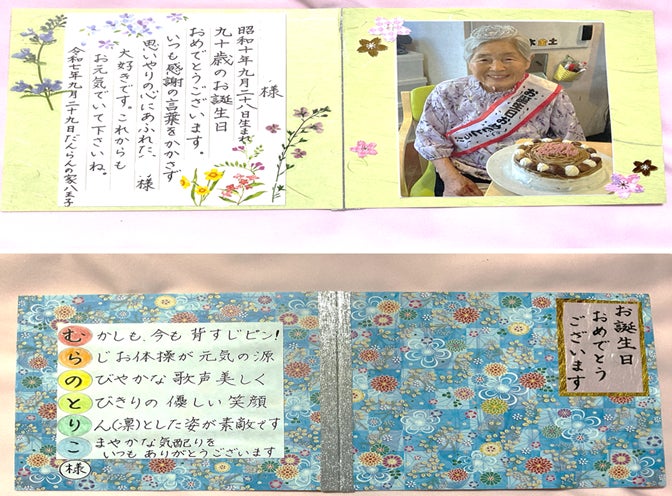 様
昭和十年九月二十八日生まれ
九十歳のお誕生日
おめでとうございます。
いつも感謝の言葉をかかさず
思いやりの心にあふれた、様
大好きです。これからも
お元気でいて下さいね。
令和七年九月二十九日だんらんの家八王子
お誕生日おめでとう
むかしも、今も背すじピン!
らじお体操が元気の源
のびやかな歌声美しく
とびきりの優しい笑顔
りん(凛)とした姿が素敵です
こまやかな気配りを
いつもありがとうございます
様
お誕生日
おめでとう
ございます